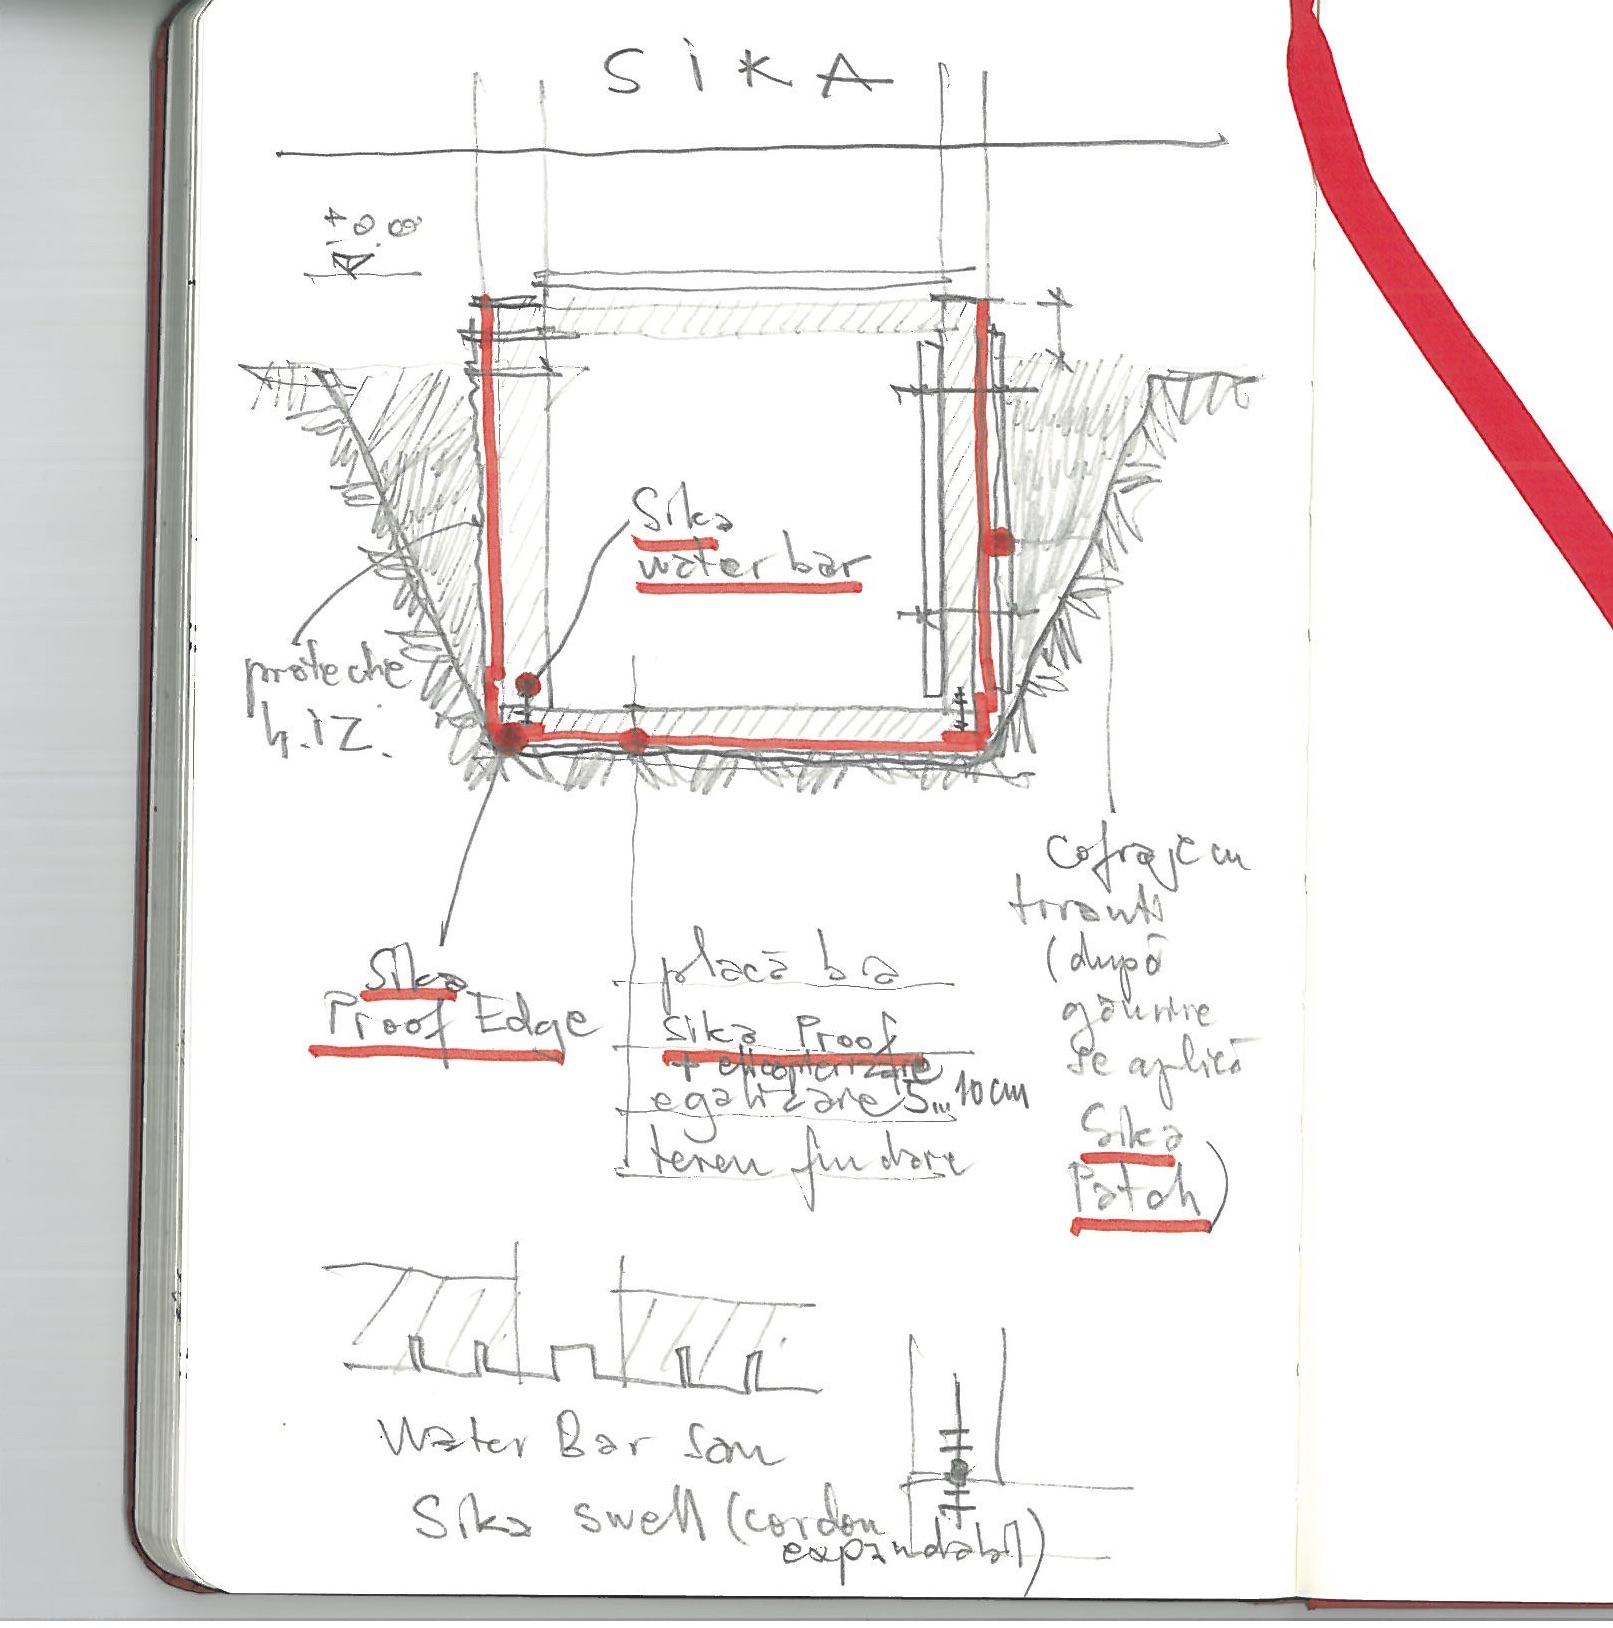 SIKA
±0.00
Sika
water bar
protecție
h.iz.
Sika
Proof Edge
placă b a
sika Proof
+ elicopterizare
egalizare 5...10cm
teren fundare
cofraje cu
tiranti
(după
găurire
se aplică
Sika
Patch)
Water Bar sau
Sika swell (cordon
expandabil)